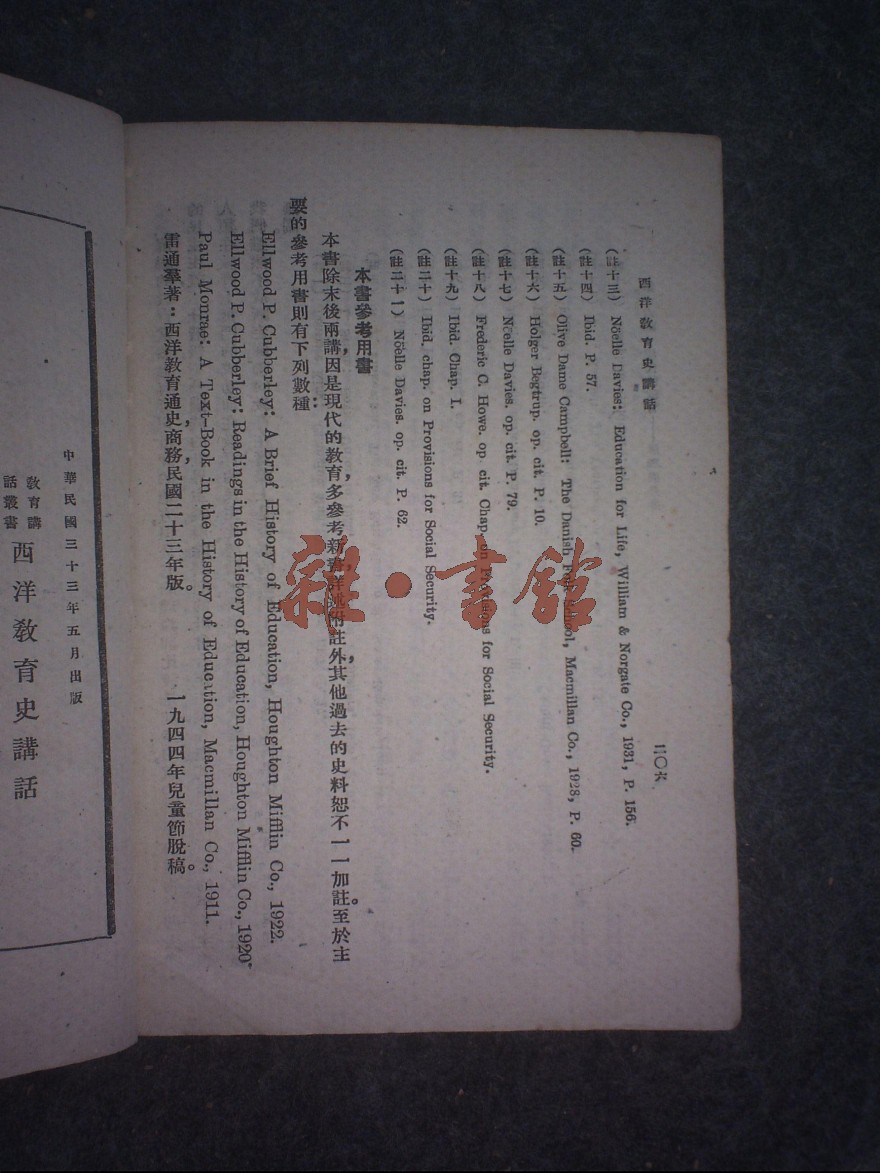 西洋教育史講話
二〇六
(註十三) Nöelle Davies: Education for Life, William & Norgate Co., 1931, P. 156.
(註十四) Ibid. P. 57.
(註十五) Olive Dame Campbell: The Danish Folk School, Macmillan Co., 1928, P. 60.
(註十六) Holger Begtrup. op. cit. P. 10.
(註十七) Nöelle Davies. op. cit. P. 79.
(註十八) Frederic C. Howe. op cit. Chap. on Provisions for Social Security.
(註十九) Ibid. Chap. I.
(註二十) Ibid. chap. on Provisions for Social Security.
(註二十一) Nöelle Davies. op. cit. P. 62.
本書參考用書
本書除末後兩講,因是現代的教育,多參考新書,詳述附註外,其他過去的史料恕不一一加註。至於主
要的參考用書則有下列數種:
Ellwood P. Cubberley: A Brief History of Education, Houghton Mifflin Co., 1922.
Ellwood P. Cubberley: Readings in the History of Education, Houghton Mifflin Co., 1920
Paul Monrae: A Text-Book in the History of Education, Macmillan Co., 1911.
雷通羣著:西洋教育通史,商務,民國二十三年版。
一九四四年兒童節脫稿。
中華民國三十三年五月出版
教育講話叢書
西洋教育史講話
雜·書館